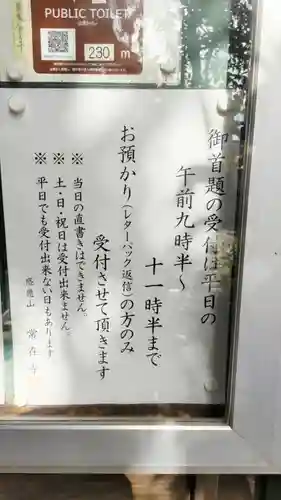 PUBLIC TOILET
230 m
御首題の受付は平日の
午前九時半～
十一時半まで
お預かり（レターパック返信）の方のみ
受付させて頂きます
※ 当日の直書きはできません。
※ 土・日・祝日は受付出来ません。
※ 平日でも受付出来ない日もあります
常在寺